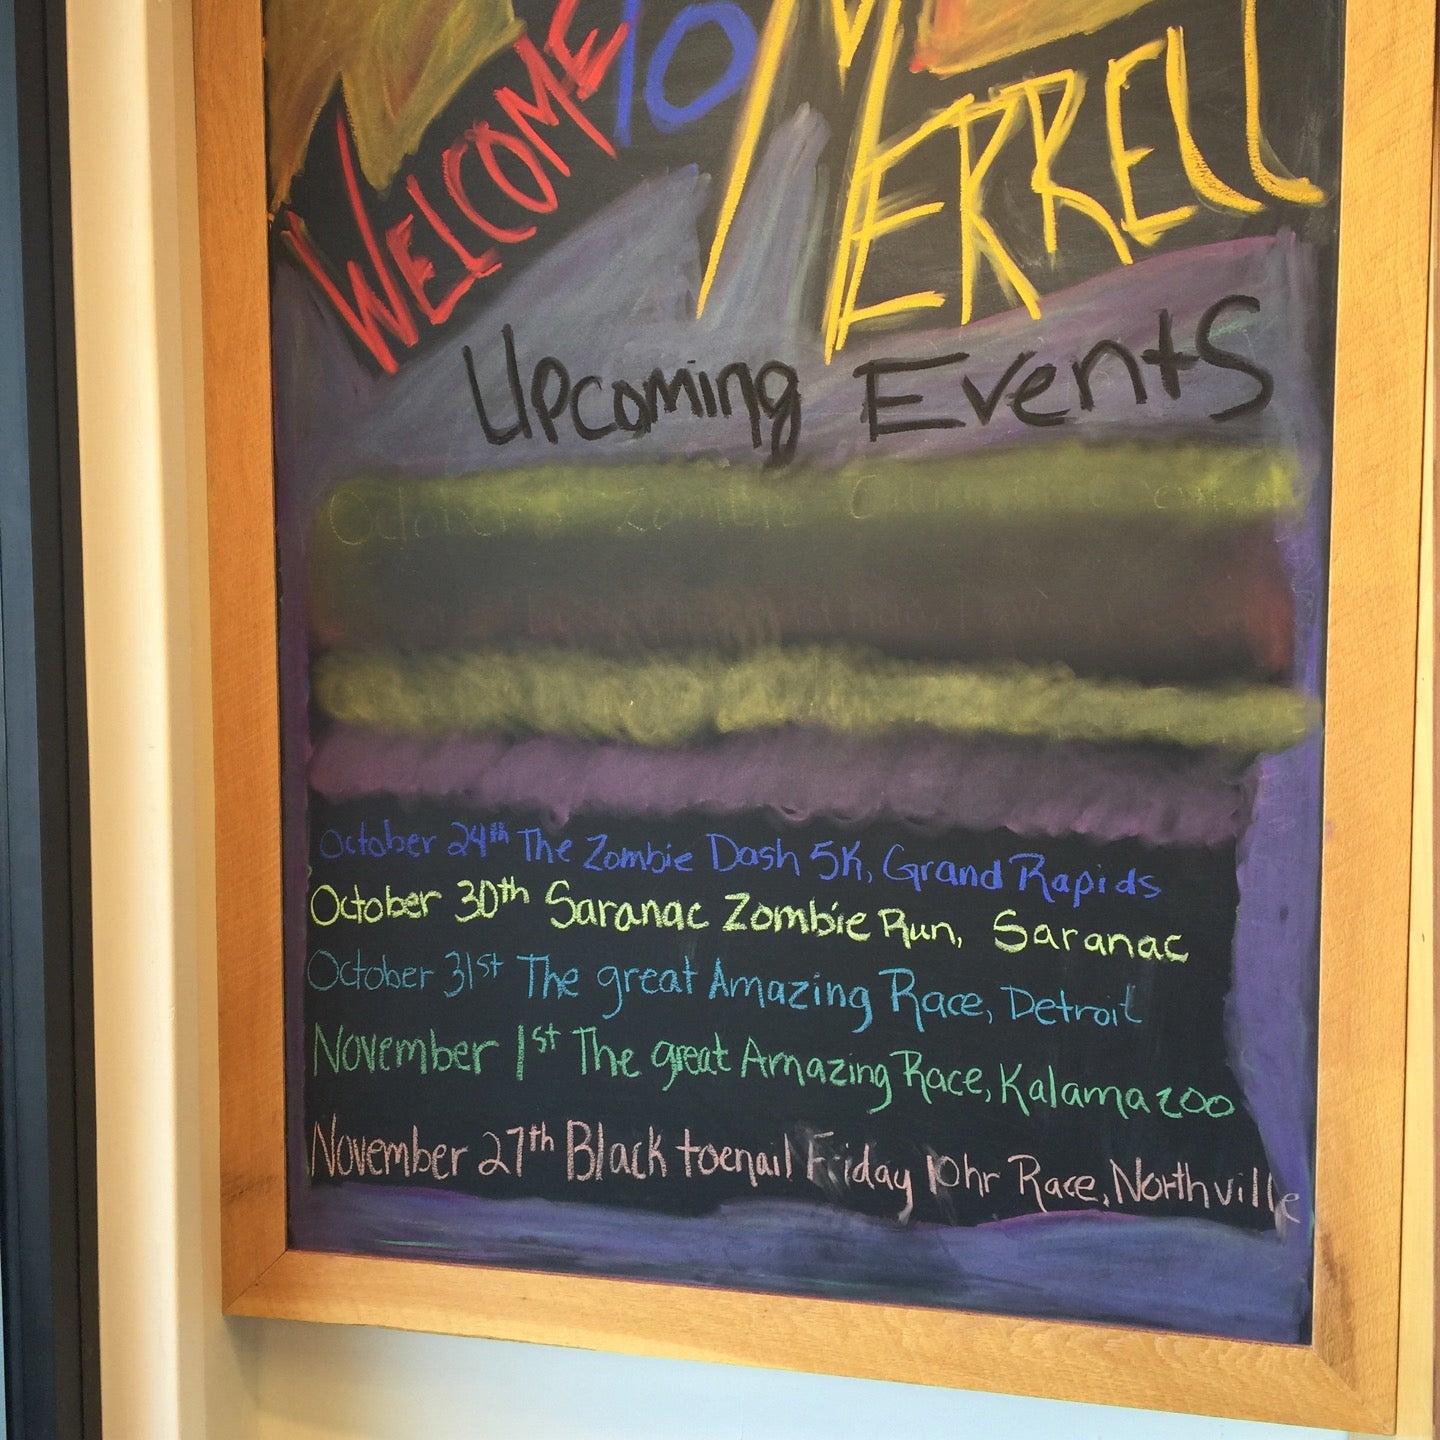 WELCOME TO MERRELL
Upcoming Events
October Zombie
October 24th The Zombie Dash 5K, Grand Rapids
October 30th Saranac Zombie Run, Saranac
October 31st The great Amazing Race, Detroit
November 1st The great Amazing Race, Kalamazoo
November 27th Black toenail Friday 10hr Race, Northville